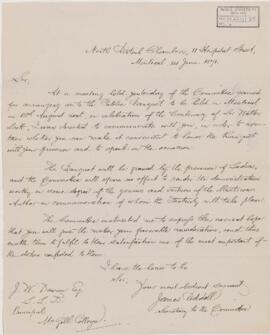 North British Chambers, 11 Hospital Street,
Montreal 1st June 1871.
Sir,
At a meeting held yesterday of the Committee named
for arranging as to the Public Banquet to be held in Montreal
on 15th August next, in celebration of the Centenary of Sir Walter
Scott, I was directed to communicate with you, in order to ascer-
tain whether you can make it convenient to honor the Banquet
with your presence and to speak on the occasion.
The Banquet will be graced by the presence of Ladies,
and the Committee will spare no effort to render the demonstration
worthy in some degree of the genius and virtues of the illustrious
Author in commemoration of whom the festivity will take place.
The Committee instructed me to express their earnest hope
that you will give the matter your favorable consideration, and thus
enable them to fulfil to their satisfaction one of the most important of
the duties confided to them.
I have the honor to be
Sir,
Your most obedient servant,
James
Secretary to the Committee
J. W. Dawson Esq.
L.L.D.
Principal
McGill College